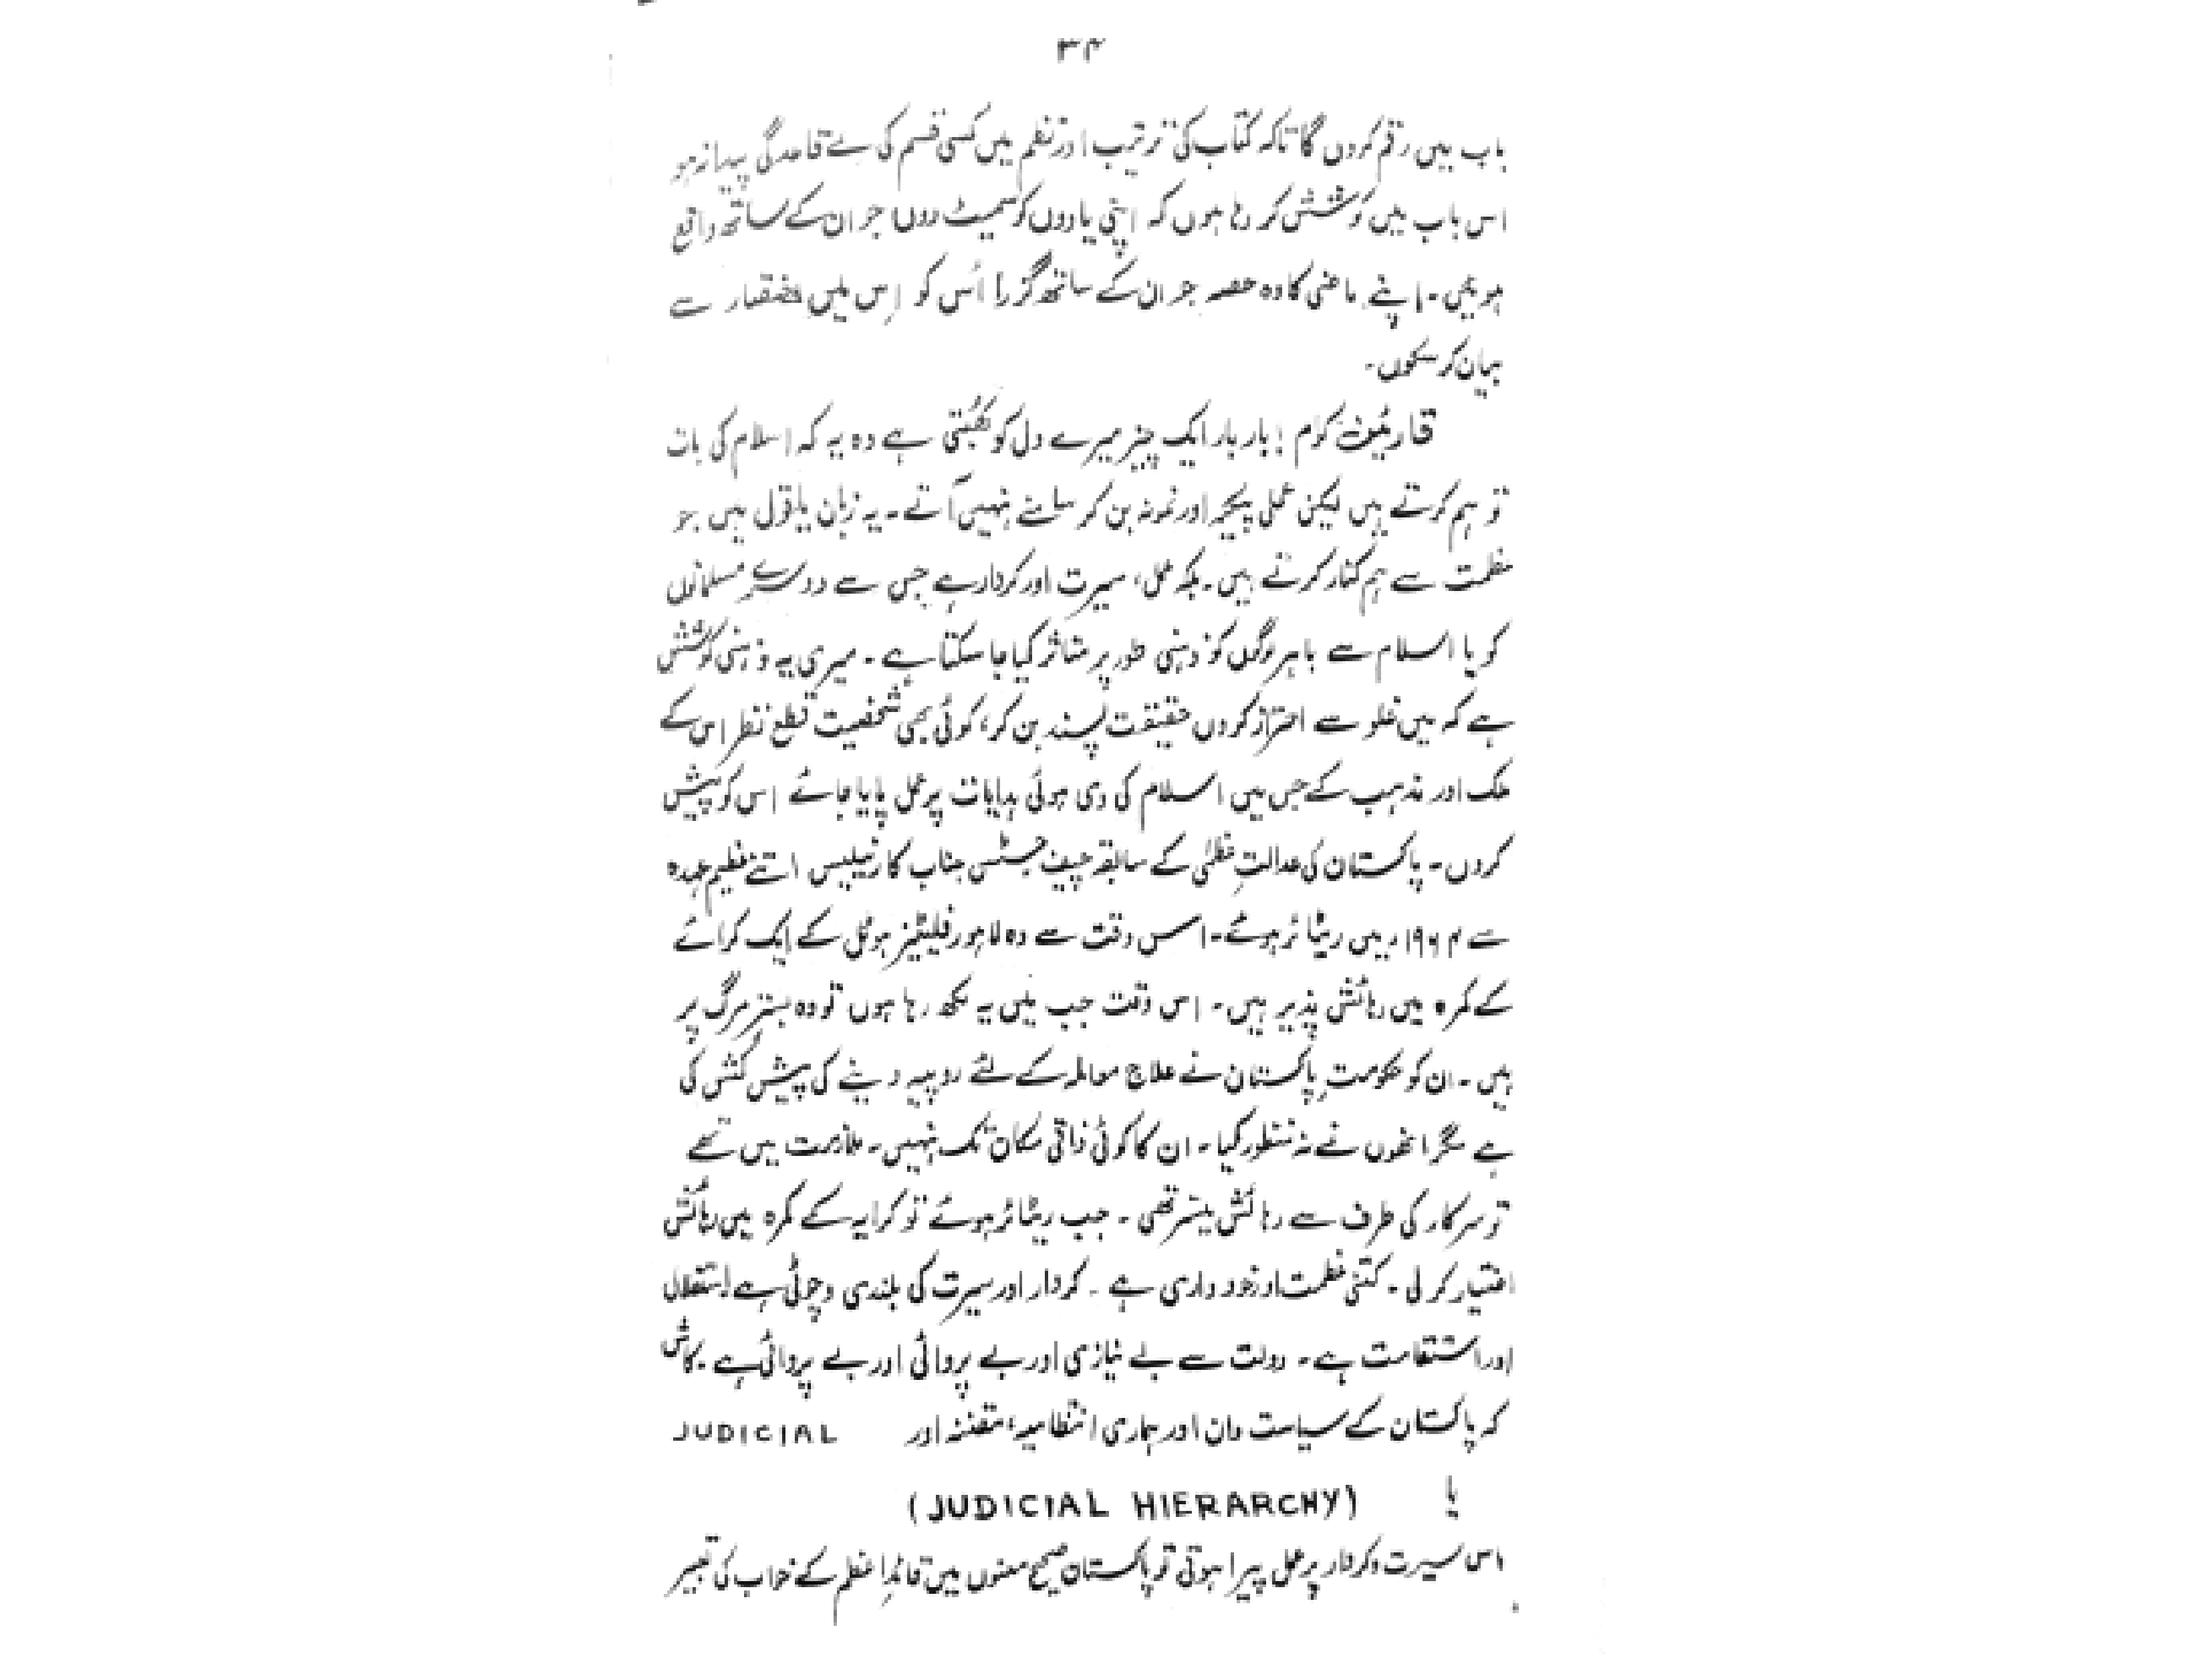 ۳۴
باب میں رقم کروں گا تاکہ کتاب کی ترتیب اور نظم میں کسی قسم کی بے قاعدگی پیدا نہ ہو
اس باب میں کوشش کر رہا ہوں کہ اپنی یادوں کو سمیٹ دوں جو ان کے ساتھ واقع
ہوئیں۔ اپنے ماضی کا وہ حصہ جو ان کے ساتھ گزرا اُس کو اِس میں اختصار سے
بیان کر سکوں۔
قارئین کرام! بار بار ایک چیز میرے دل کو چُبھتی ہے وہ یہ کہ اسلام کی بات
تو ہم کرتے ہیں لیکن عملی پیکر اور نمونہ بن کر سامنے نہیں آتے۔ یہ زبان یا قول نہیں جو
عظمت سے ہم کنار کرتے ہیں۔ بلکہ عمل، سیرت اور کردار ہے جس سے دوسرے مسلمانوں
کو یا اسلام سے باہر لوگوں کو ذہنی طور پر متاثر کیا جا سکتا ہے۔ میری یہ ذہنی کوشش
ہے کہ میں غلو سے احتراز کروں حقیقت پسند بن کر، کوئی بھی شخصیت قطع نظر اس کے
ملک اور مذہب کے جس میں اسلام کی دی ہوئی ہدایات پر عمل پایا جائے اس کو پیش
کروں۔ پاکستان کی عدالتِ عظمیٰ کے سابقہ چیف جسٹس جناب کارنیلیس اتنے عظیم عہدہ
سے ۱۹۶۴ء میں ریٹائر ہوئے۔ اس وقت سے وہ لاہور فلیٹیز ہوٹل کے ایک کرائے
کے کمرہ میں رہائش پذیر ہیں۔ اس وقت جب میں یہ لکھ رہا ہوں تو وہ بسترِ مرگ پر
ہیں۔ ان کو حکومتِ پاکستان نے علاج معالجہ کے لئے روپیہ دینے کی پیش کش کی
ہے مگر انھوں نے نہ منظور کیا۔ ان کا کوئی ذاتی مکان تک نہیں۔ ملازمت میں تھے
تو سرکار کی طرف سے رہائش میسر تھی۔ جب ریٹائر ہوئے تو کرایہ کے کمرہ میں رہائش
اختیار کر لی۔ کتنی عظمت اور خود داری ہے۔ کردار اور سیرت کی بلندی و چوٹی ہے استقلال
اور استقامت ہے۔ دولت سے بے نیازی اور بے پروائی اور بے پروائی ہے۔ کاش
کہ پاکستان کے سیاست دان اور ہماری انتظامیہ، مقننہ اور JUDICIAL
یا (JUDICIAL HIERARCHY)
اس سیرت و کردار پر عمل پیرا ہوتی تو پاکستان صحیح معنوں میں قائدِ اعظم کے خواب کی تعبیر